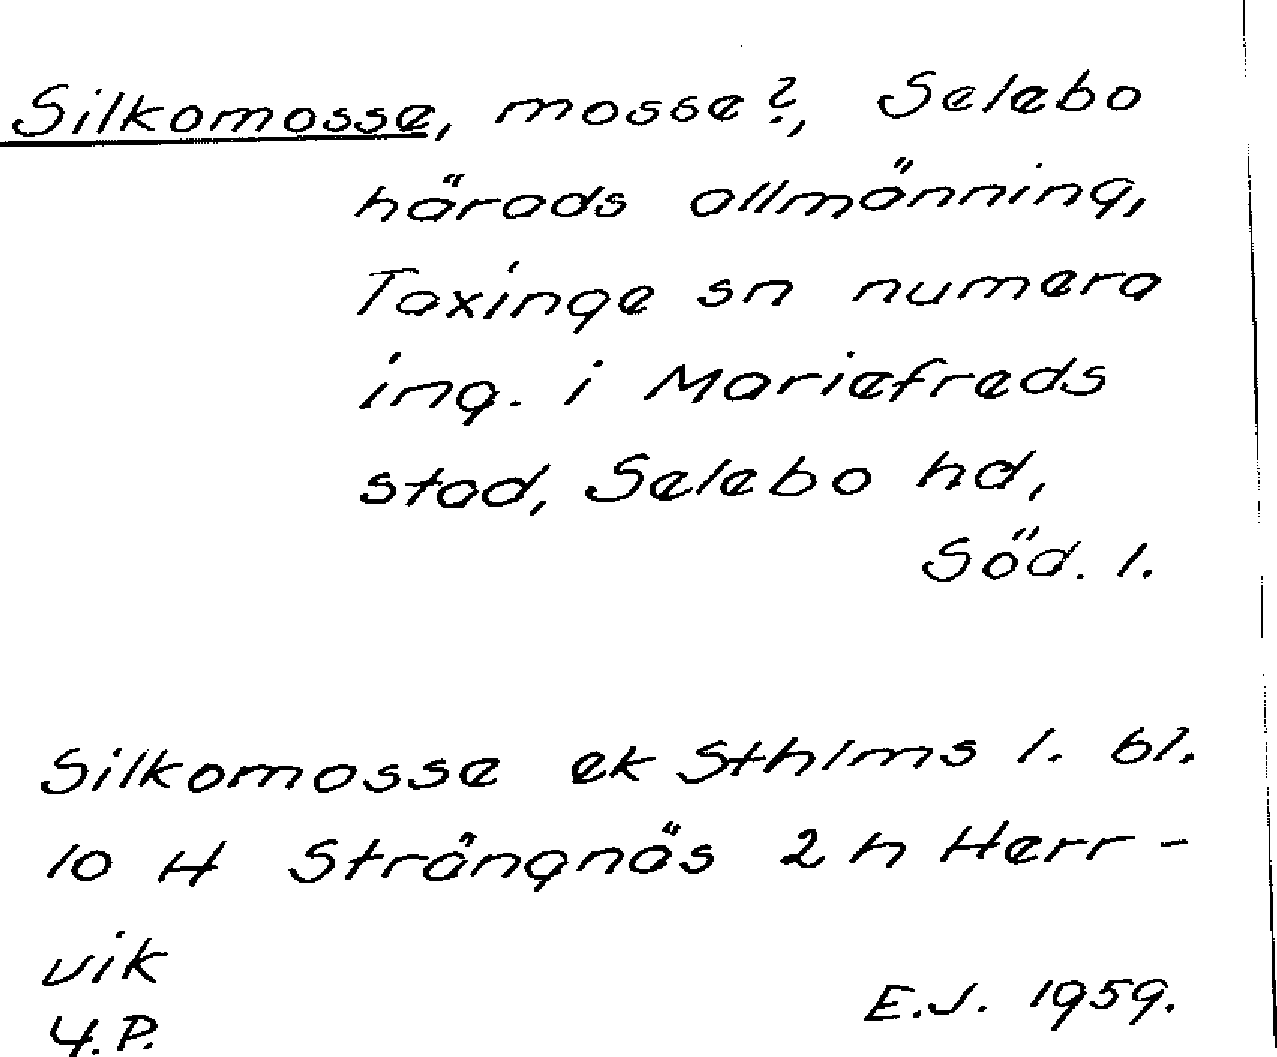 Silkomosse, mosse?, Selebo
härads allmänning,
Taxinge sn numera
ing. i Mariefreds
stad, Selebo hd,
Söd. l.
Silkomosse ek Sthlms l. bl.
10 H Strängnäs 2 h Herr-
vik
Y.P.
E.J. 1959.